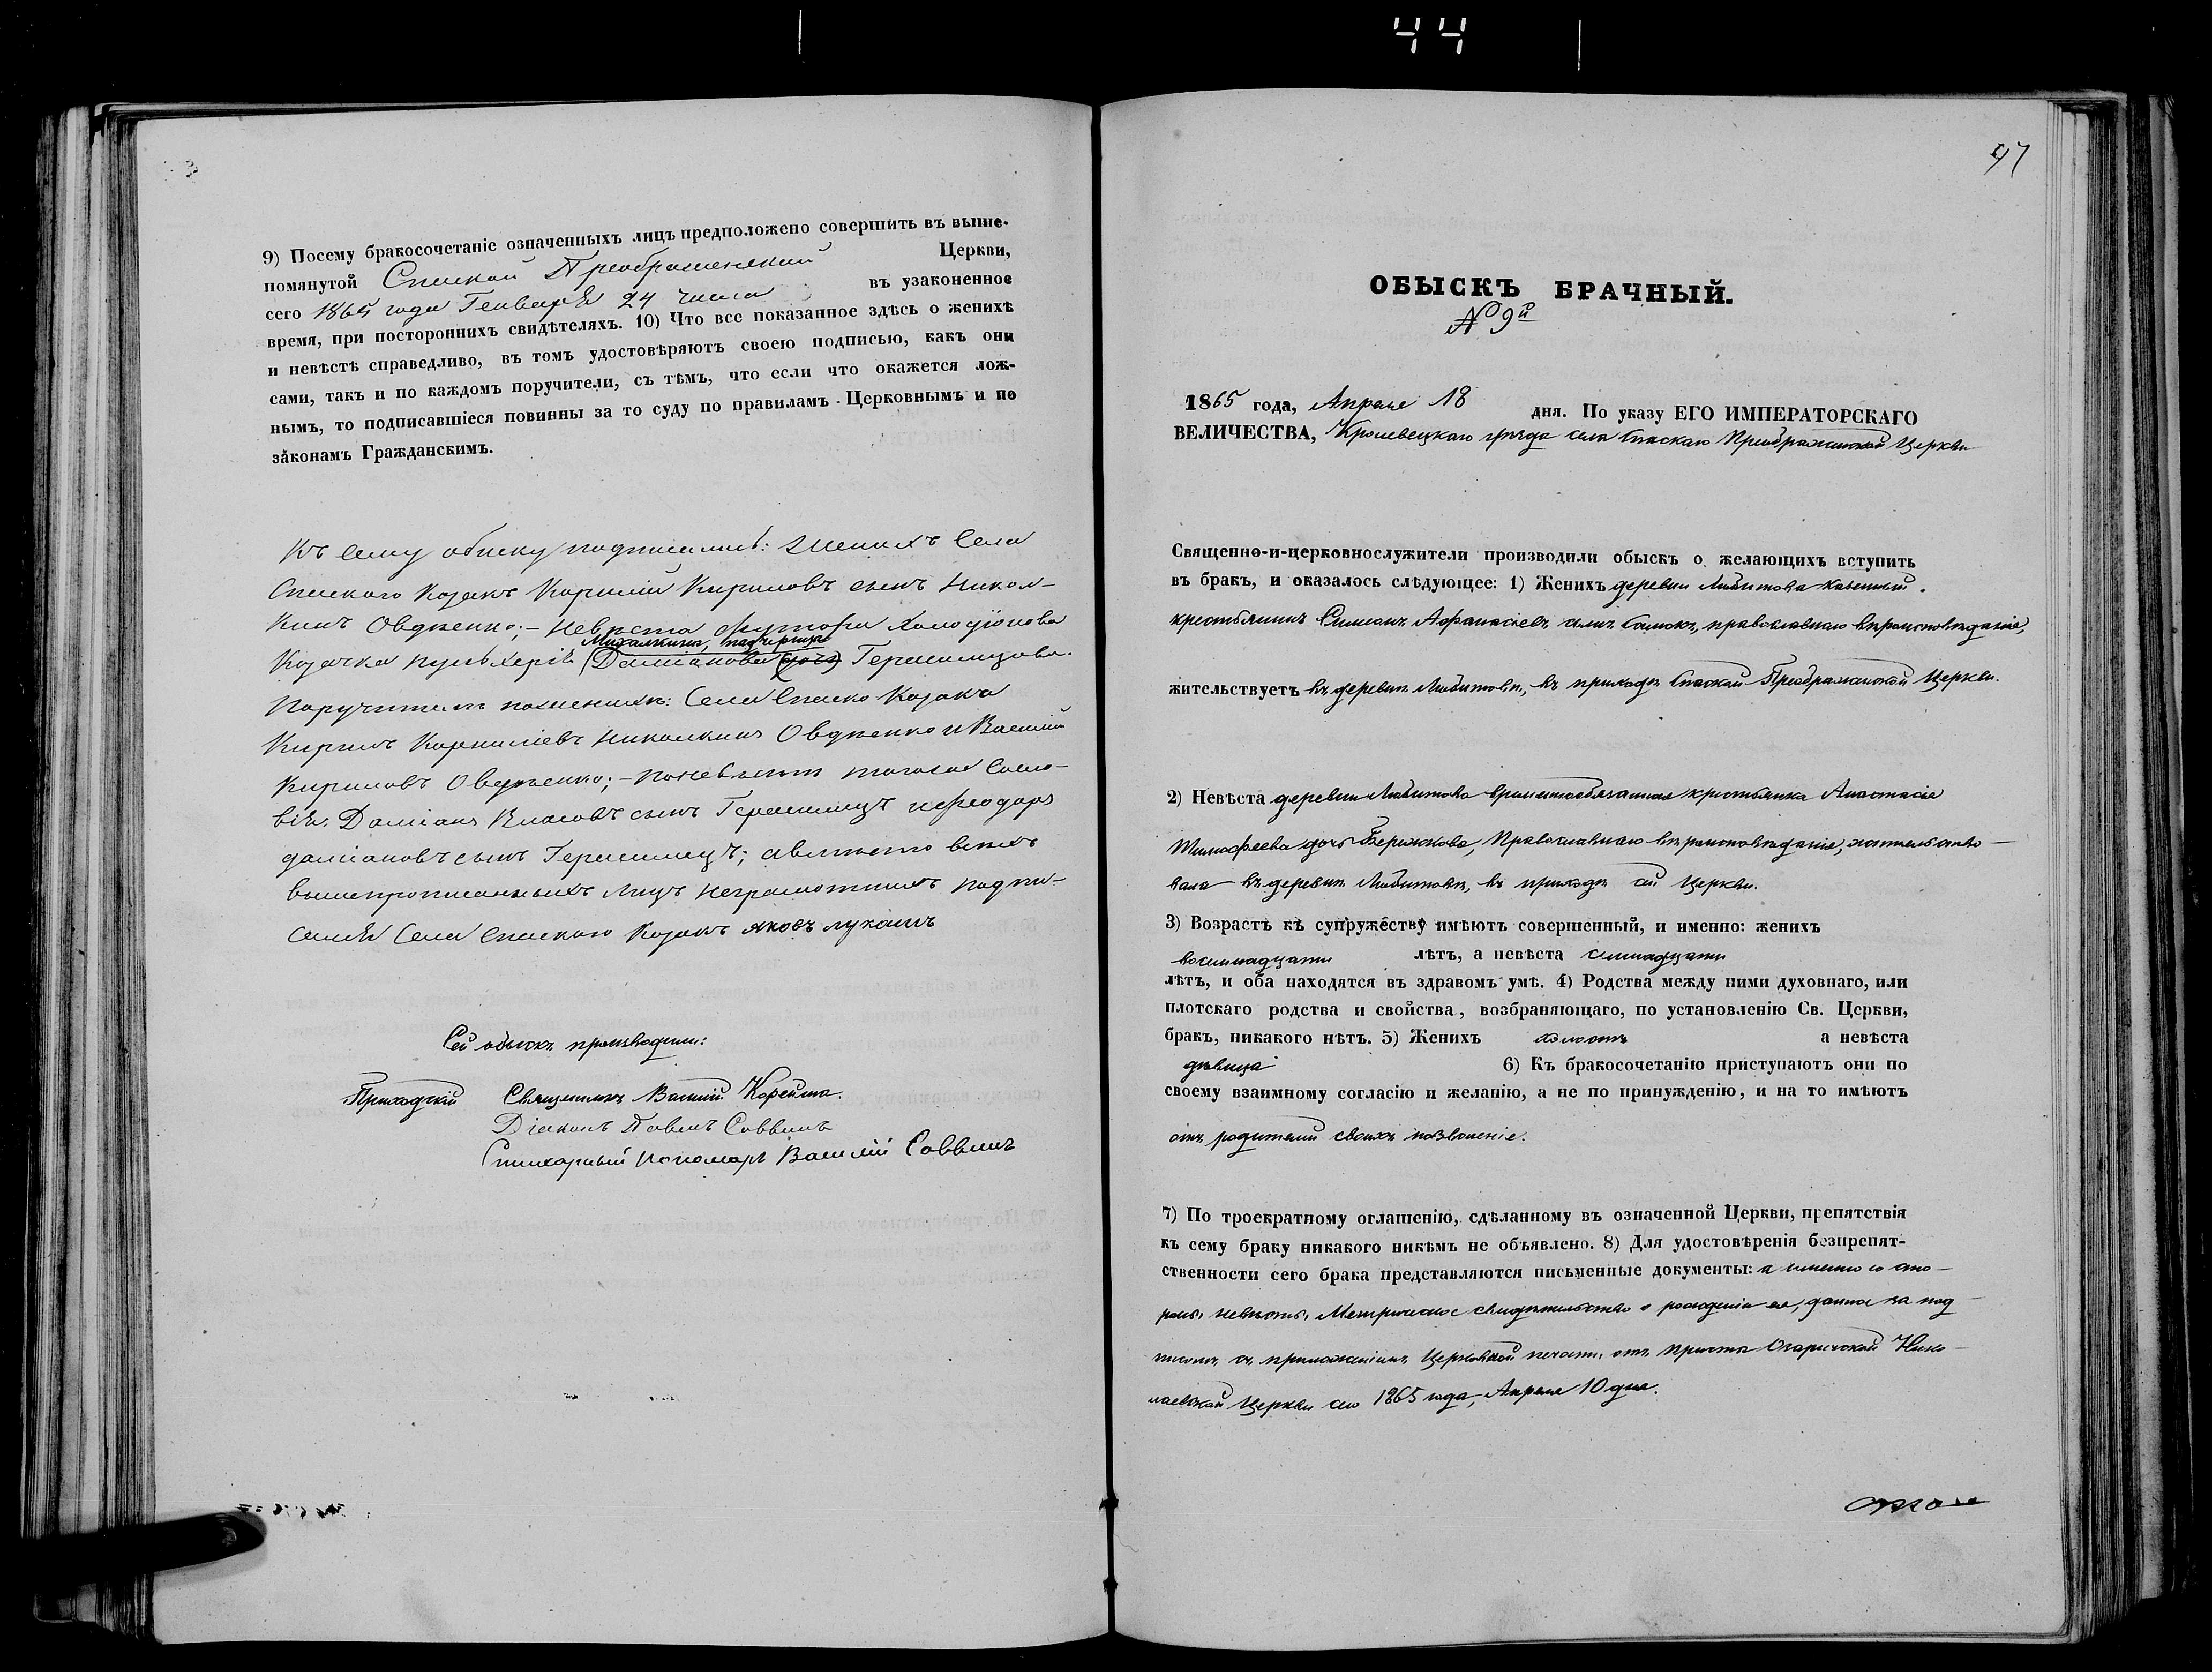 44
9) Посему бракосочетаніе означенныхъ лицъ предположено совершить въ выше-
помянутой Спаской Преображенской Церкви,
сего 1865 года Генваря 24 числа въ узаконенное
время, при постороннихъ свидѣтеляхъ. 10) Что все показанное здѣсь о женихѣ
и невѣстѣ справедливо, въ томъ удостовѣряютъ своею подписью, какъ они
сами, такъ и по каждомъ поручители, съ тѣмъ, что если что окажется лож-
нымъ, то подписавшіеся повинны за то суду по правиламъ Церковнымъ и по
законамъ Гражданскимъ.
Къ сему обыску подписались: женихъ Села
Спаского Козакъ Корнилій Кириловъ сынъ Никол-
кинъ Овдѣенко; – Невѣста хутора
Михалкина, падчерица
Козачка Пульхерія Даміанова (дочь) Герасимцова.
Поручители по женихѣ: Села Спаско Козаки
Кирилъ Корниліевъ Николкинъ Овдѣенко и Василій
Кириловъ Овдѣенко; – по невѣсте тогоже Сосло-
вія: Даміанъ Власовъ сынъ Герасимецъ и Феодоръ
даміановъ сынъ Герасимецъ; а вместо всехъ
вышепрописанныхъ лицъ неграмотныхъ подпи-
сался Села Спаского Козакъ яковъ лукашъ
Сей обыскъ производили:
Приходскій Священникъ Василій Корейша.
Діаконъ Павелъ Саввинъ
Стихарный пономарь Василій Саввинъ
47
ОБЫСКЪ БРАЧНЫЙ.
№ 9й
1865 года, Апреля 18 дня. По указу ЕГО ИМПЕРАТОРСКАГО
ВЕЛИЧЕСТВА, Кролевецкаго уѣзда села Спаскаго Преображенской Церкви
Священно-и-церковнослужители производили обыскъ о желающихъ вступить
въ бракъ, и оказалось слѣдующее: 1) Женихъ деревни Любитова казенный
крестьянинъ Симеонъ Афанасіевъ сынъ православнаго вѣроисповѣданія,
жительствуетъ въ деревнѣ Любитовѣ, въ приходѣ Спаской Преображенской Церкви.
2) Невѣста деревни Любитова временнообязанная крестьянка Анастасія
Тимофеева дочь Православнаго вѣроисповѣданія, жительство-
вала въ деревнѣ Любитовѣ, въ приходѣ сей Церкви.
3) Возрастъ къ супружеству имѣютъ совершенный, и именно: женихъ
восемнадцати лѣтъ, а невѣста семнадцати
лѣтъ, и оба находятся въ здравомъ умѣ. 4) Родства между ними духовнаго, или
плотскаго родства и свойства, возбраняющаго, по установленію Св. Церкви,
бракъ, никакого нѣтъ. 5) Женихъ холостъ а невѣста
дѣвица 6) Къ бракосочетанію приступаютъ они по
своему взаимному согласію и желанію, а не по принужденію, и на то имѣютъ
отъ родителей своихъ позволеніе.
7) По троекратному оглашенію, сдѣланному въ означенной Церкви, препятствія
къ сему браку никакого никѣмъ не объявлено. 8) Для удостовѣренія безпрепят-
ственности сего брака представляются письменные документы: а именно со сто-
роны невѣсты, Метрическое свидѣтельство о рожденіи ея, данное за под
писомъ съ приложеніемъ Церковной печати, отъ причта Нико-
лаевской Церкви сего 1865 года, Апреля 10 дня.